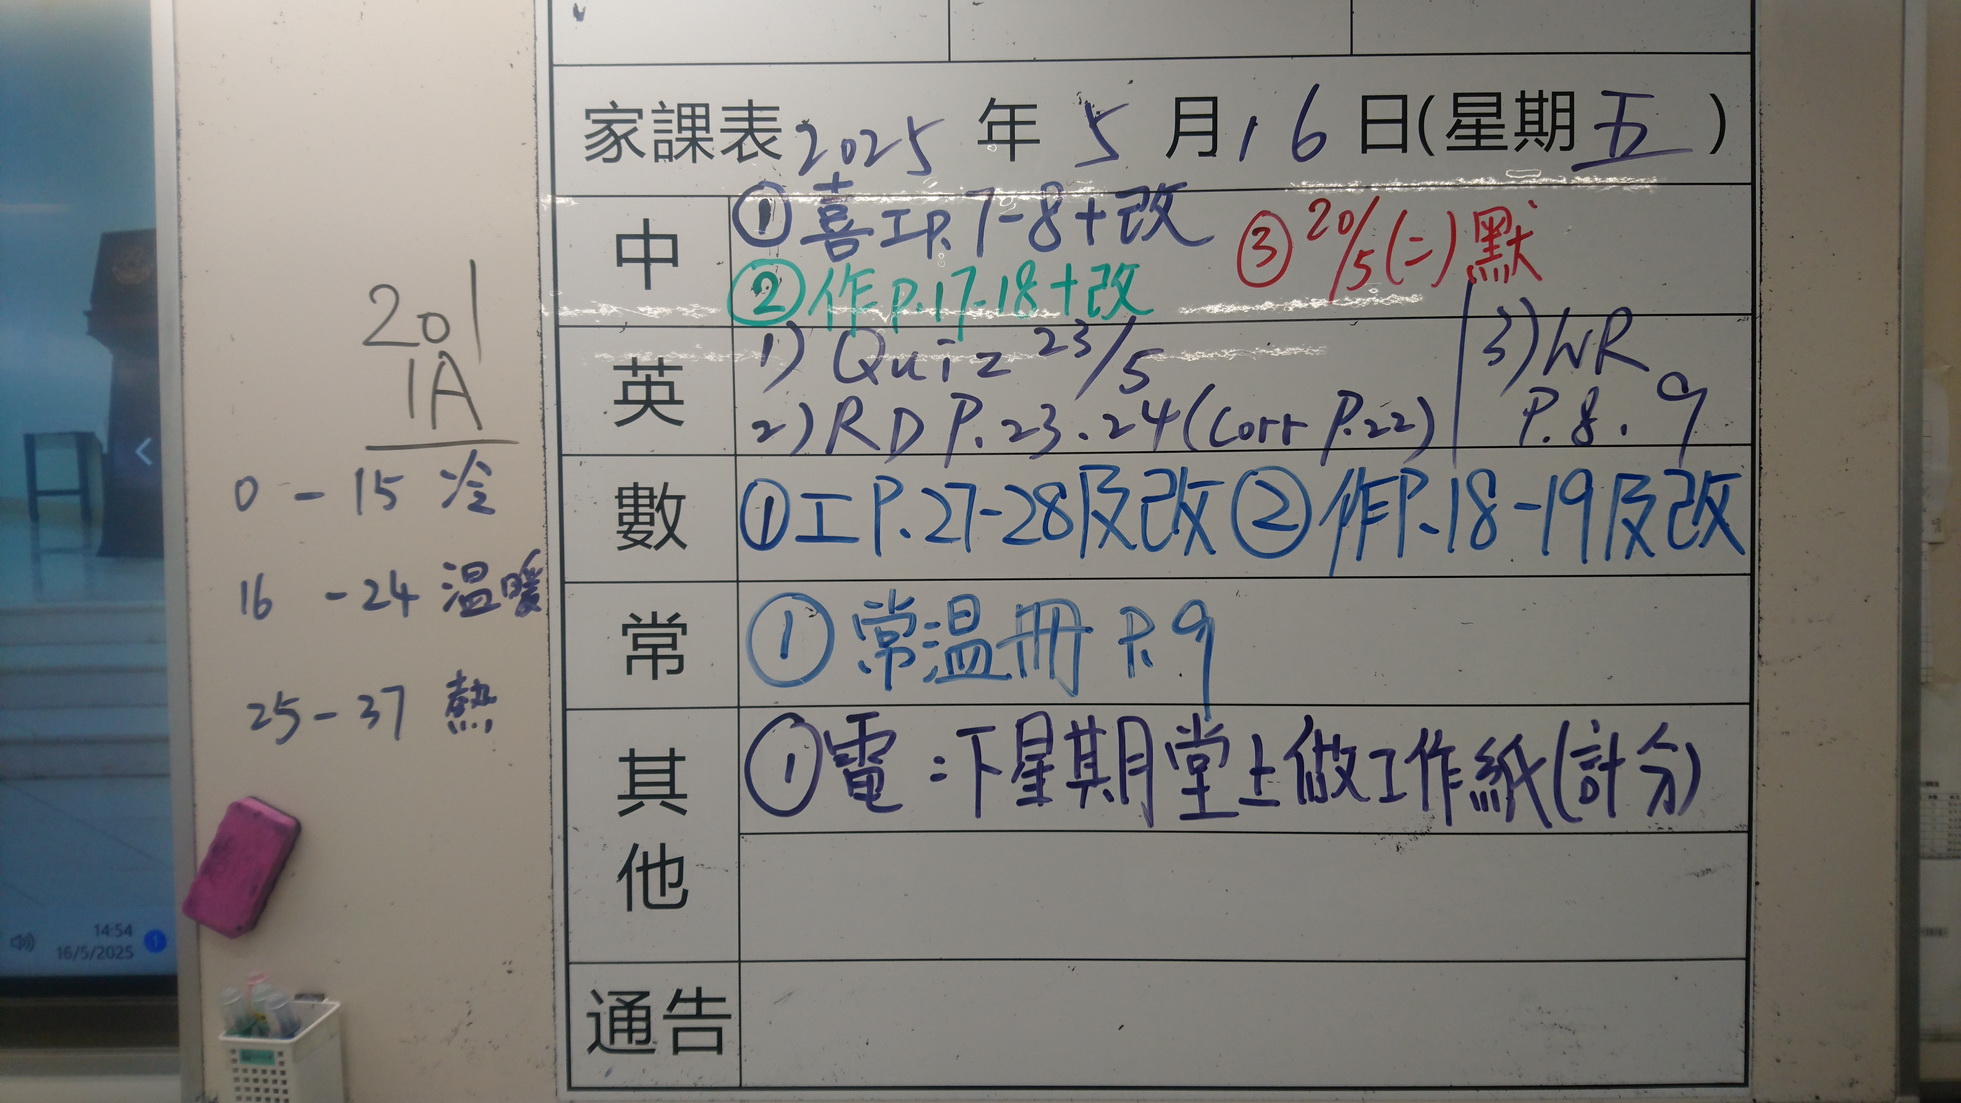 家課表2025年5月16日(星期五)
中
①喜工P.7-8+改
②作P.17-18+改
③20/5(二)默
英
1) Quiz 23/5
2) RD P.23.24(Corr P.22)
3) WR
P.8.9
數
①工P.27-28及改②作P.18-19及改
常
①常温冊 P.9
其他
①電:下星期堂上做工作紙(計分)
通告
201
1A
0-15 冷
16-24 温暖
25-37 熱
14:54
16/5/2025